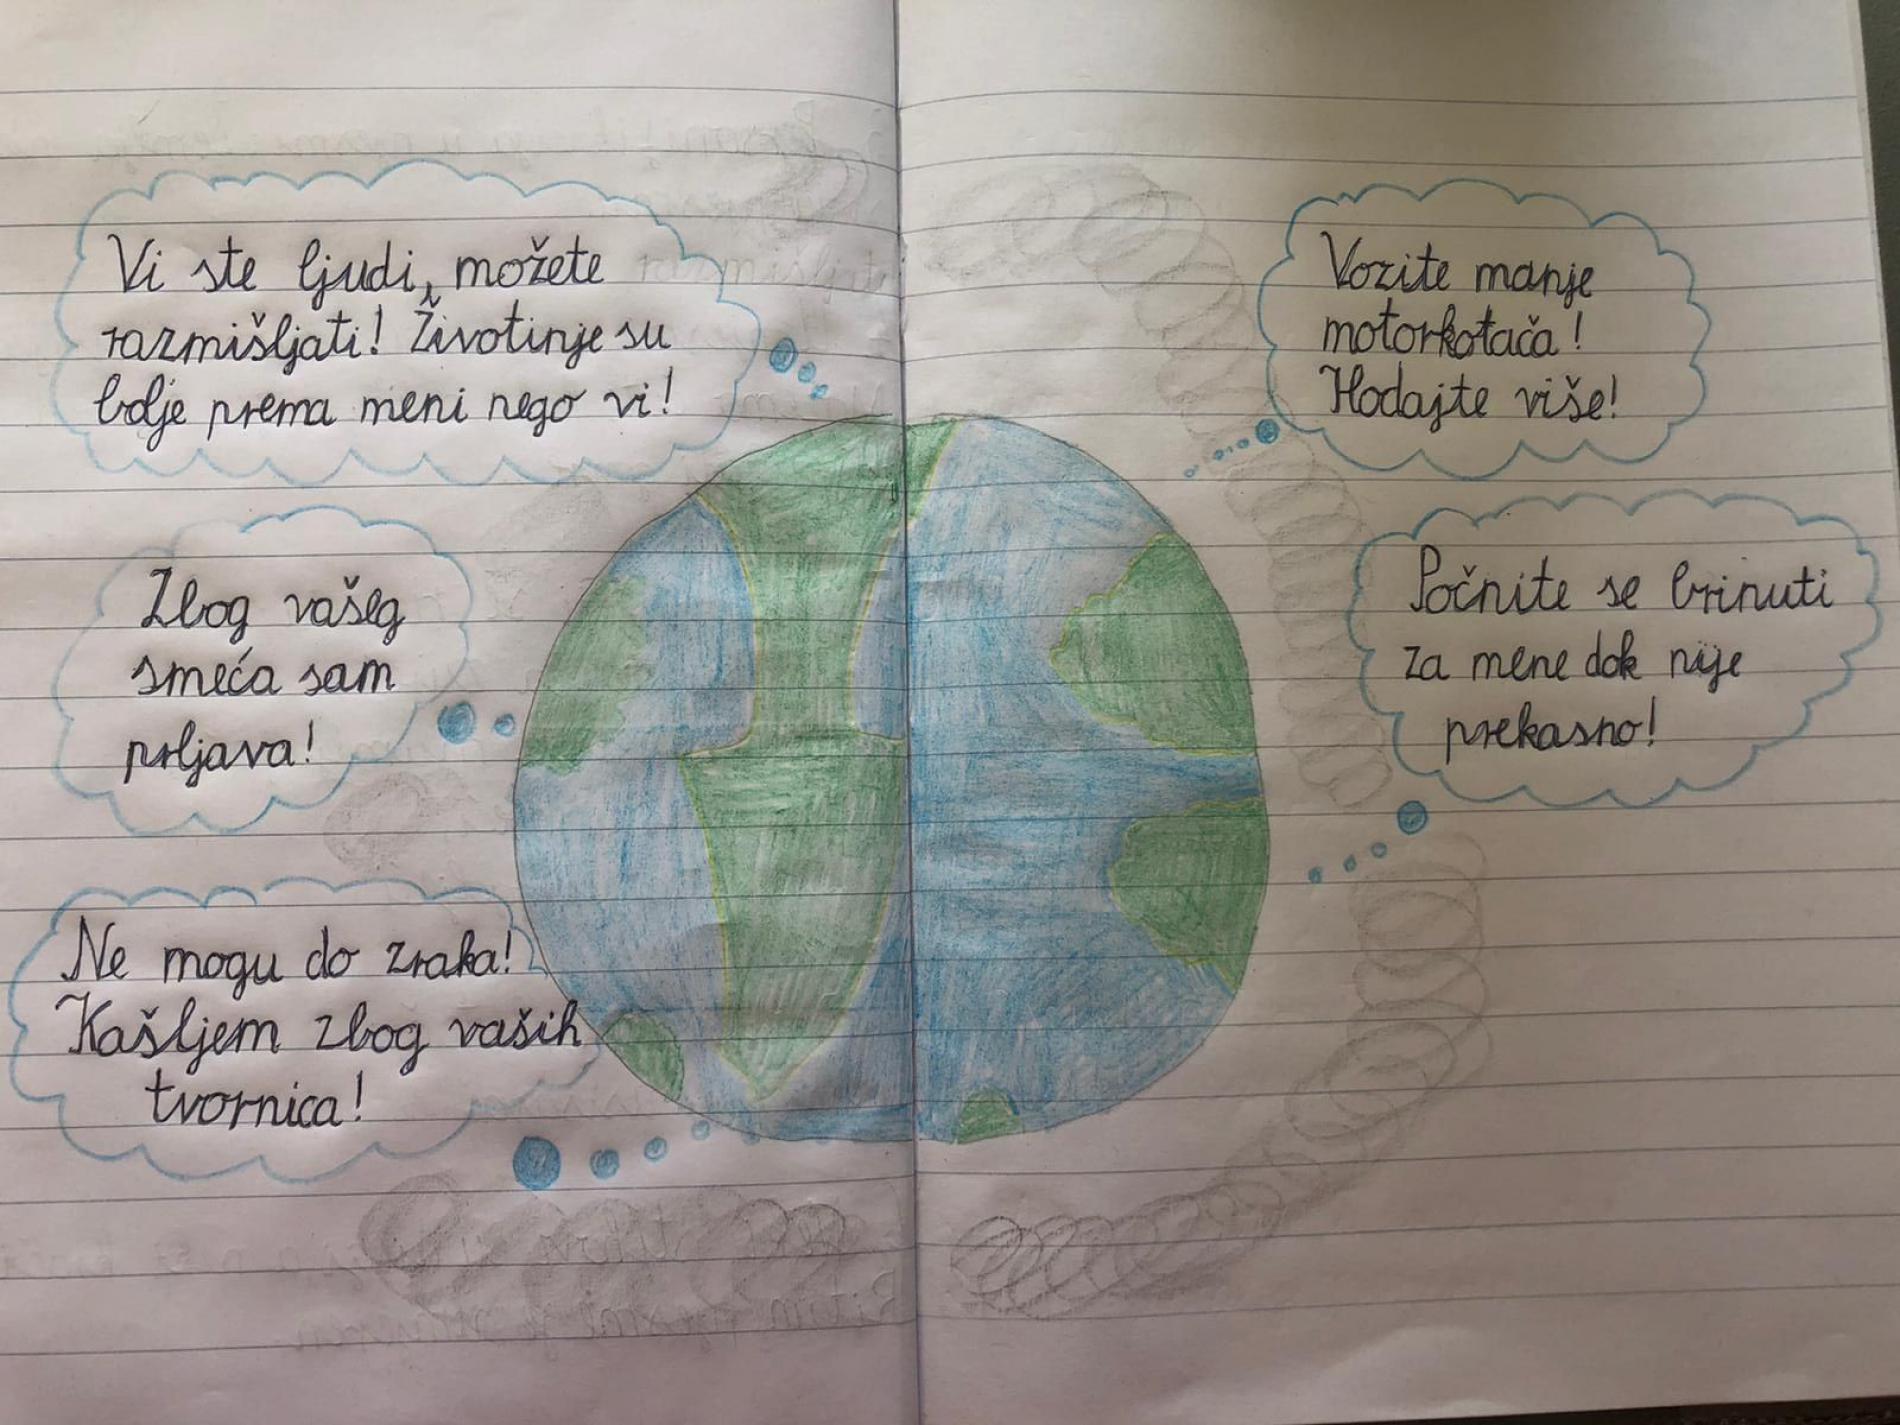 Vi ste ljudi, možete
razmišljati! Životinje su
bolje prema meni nego vi!
Zbog vašeg
smeća sam
prljava!
Ne mogu do zraka!
Kašljem zbog vaših
tvornica!
Vozite manje
motorkotača!
Hodajte više!
Počnite se brinuti
za mene dok nije
prekasno!